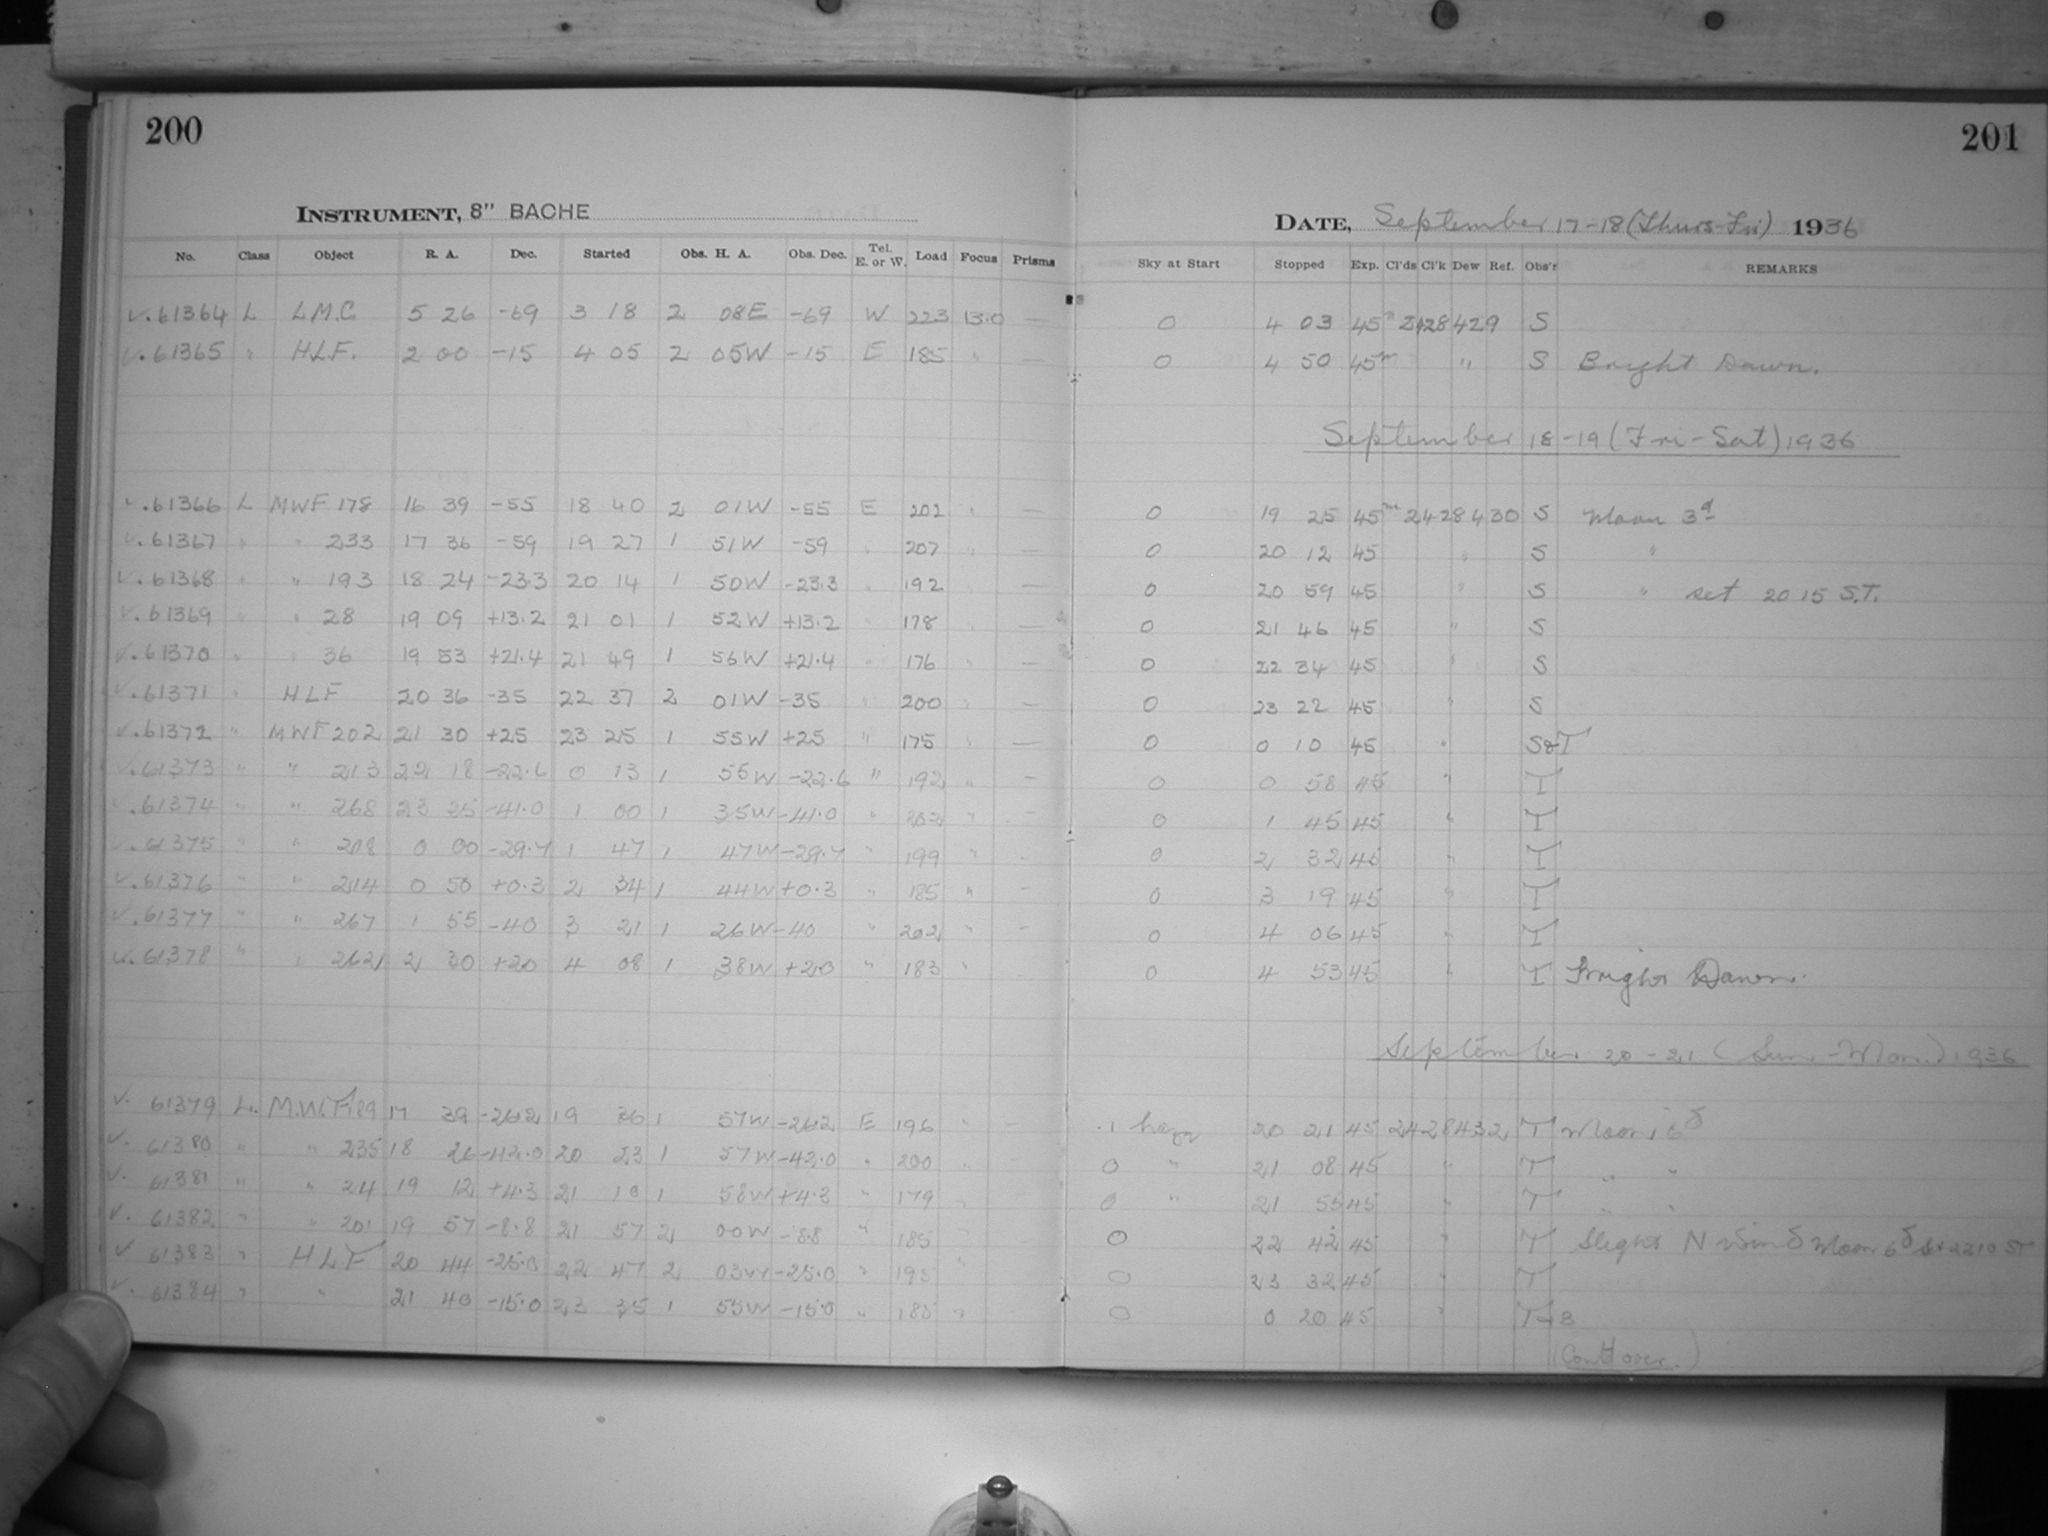 200
201
INSTRUMENT, 8" BACHE
DATE, September 17-18 (Thurs-Fri) 1936
No. Class Object R. A. Dec. Started Obs. H. A. Obs. Dec. Tel. E. or W. Load Focus Prisms Sky at Start Stopped Exp. Cl'ds Cl'k Dew Ref. Obs'r REMARKS
✓.61364 L LMC 5 26 -69 3 18 2 08E -69 W 223 13.0 — 0 4 03 45m 2428429 S
✓.61365 " HLF. 2 00 -15 4 05 2 05W -15 E 185 " — 0 4 50 45m " S Bright Dawn.
September 18-19 (Fri-Sat) 1936
✓.61366 L MWF 178 16 39 -55 18 40 2 01W -55 E 202 " — 0 19 25 45m 2428430 S Moon 3d
✓.61367 " " 233 17 36 -59 19 27 1 51W -59 " 207 " — 0 20 12 45 " S "
✓.61368 " " 193 18 24 -23.3 20 14 1 50W -23.3 " 192 " — 0 20 59 45 " S " set 20 15 S.T.
✓.61369 " " 28 19 09 +13.2 21 01 1 52W +13.2 " 178 " — 0 21 46 45 " S
✓.61370 " " 36 19 53 +21.4 21 49 1 56W +21.4 " 176 " — 0 22 34 45 " S
✓.61371 " HLF 20 36 -35 22 37 2 01W -35 " 200 " — 0 23 22 45 " S
✓.61372 " MWF 202 21 30 +25 23 25 1 55W +25 " 175 " — 0 0 10 45 " S&T
✓.61373 " " 213 22 18 -22.6 0 13 1 55W -22.6 " 192 " — 0 0 58 45 " T
✓.61374 " " 268 23 25 -41.0 1 00 1 35W -41.0 " 202 " — 0 1 45 45 " T
✓.61375 " " 208 0 00 -29.7 1 47 1 47W -29.7 " 199 " — 0 2 32 45 " T
✓.61376 " " 214 0 50 +0.3 2 34 1 44W +0.3 " 185 " — 0 3 19 45 " T
✓.61377 " " 267 1 55 -40 3 21 1 26W -40 " 202 " — 0 4 06 45 " T
✓.61378 " " 262 2 30 +20 4 08 1 38W +20 " 183 " 0 4 53 45 " T Bright Dawn.
September 20-21 (Sun-Mon) 1936
✓. 61379 L. M.W.F 189 17 39 -26.2 19 36 1 57W -26.2 E 196 " — .1 haze 20 21 45 2428432 T Moon
✓. 61380 " " 235 18 26 -42.0 20 23 1 57W -42.0 " 200 " 0 " 21 08 45 " T " "
✓. 61381 " " 24 19 12 +4.3 21 10 1 58W +4.3 " 179 " 0 " 21 55 45 " T " "
✓. 61382 " " 201 19 57 -8.8 21 57 2 00W -8.8 " 185 " 0 22 42 45 " T Slight N wind Moon
✓ 61383 " HLF 20 44 -25.0 22 47 2 03W -25.0 " 195 " 0 23 32 45 " T
✓. 61384 " " 21 40 -15.0 23 35 1 55W -15.0 " 185 " 0 0 20 45 " T&B
(Contd over.)